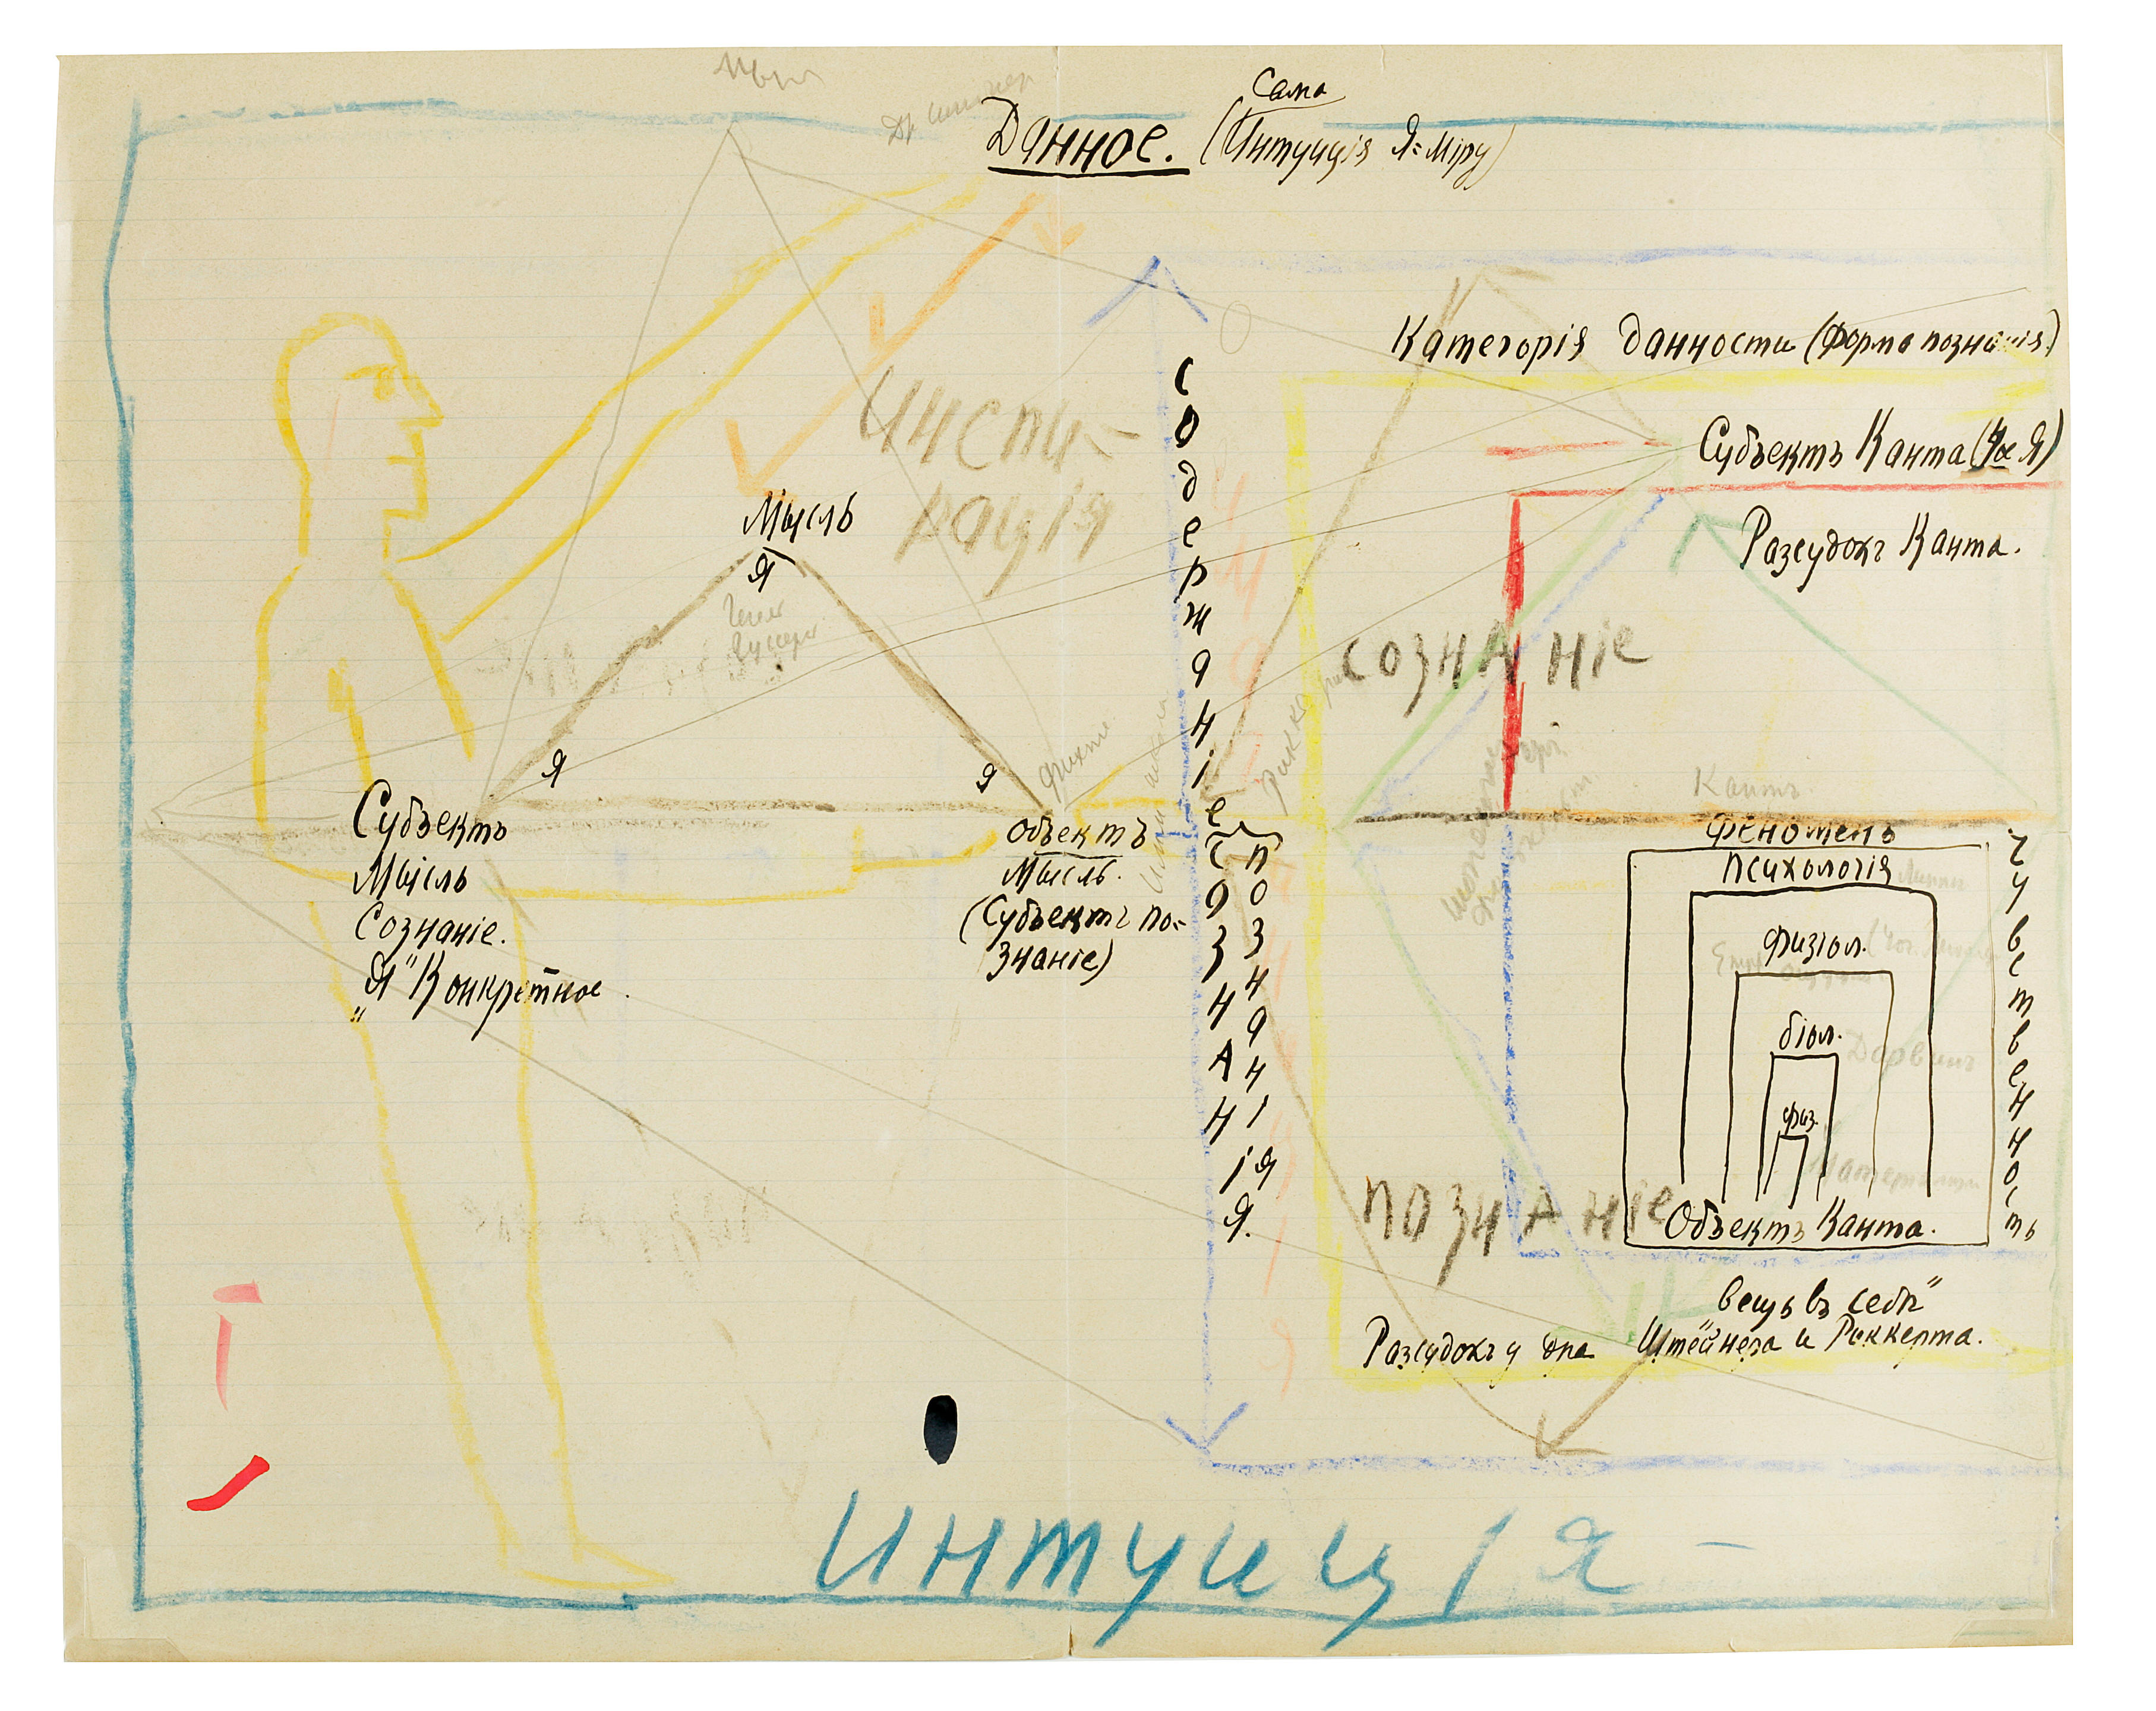 Сама
Данное. (Интуиція Я=Міру)
Категорія данности (Форма познанія)
Субъектъ Канта (Не Я)
Разсудокъ Канта.
Инспи-
рація
Мысль
Я
Я
Я
Фихте
Сознаніе
Содержаніе
Сознанія
Познанія.
Кантъ
Субъектъ
Мысль
Сознаніе.
„Я" Конкретное
Объектъ
Мысль.
(Субъектъ по-
знаніе)
Феноменъ
Психологія
Физіол.
біол.
Дарвинъ
физ.
Объектъ Канта.
Чувственность
Познаніе
Вещь въ себѣ"
Разсудокъ у дра Штейнера и Риккерта.
Интуиція